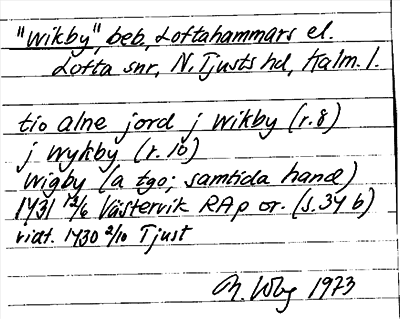 "Wikby", beb, Loftahammars el.
Lofta snr, N. Tjusts hd, Kalm. l.
tio alne jord j wikby (r. 8)
j wykby (r. 10)
wigby (a tgo; samtida hand)
1431 12/6 Västervik RAp or. (s. 34 b)
vidt. 1430 2/10 Tjust
1973